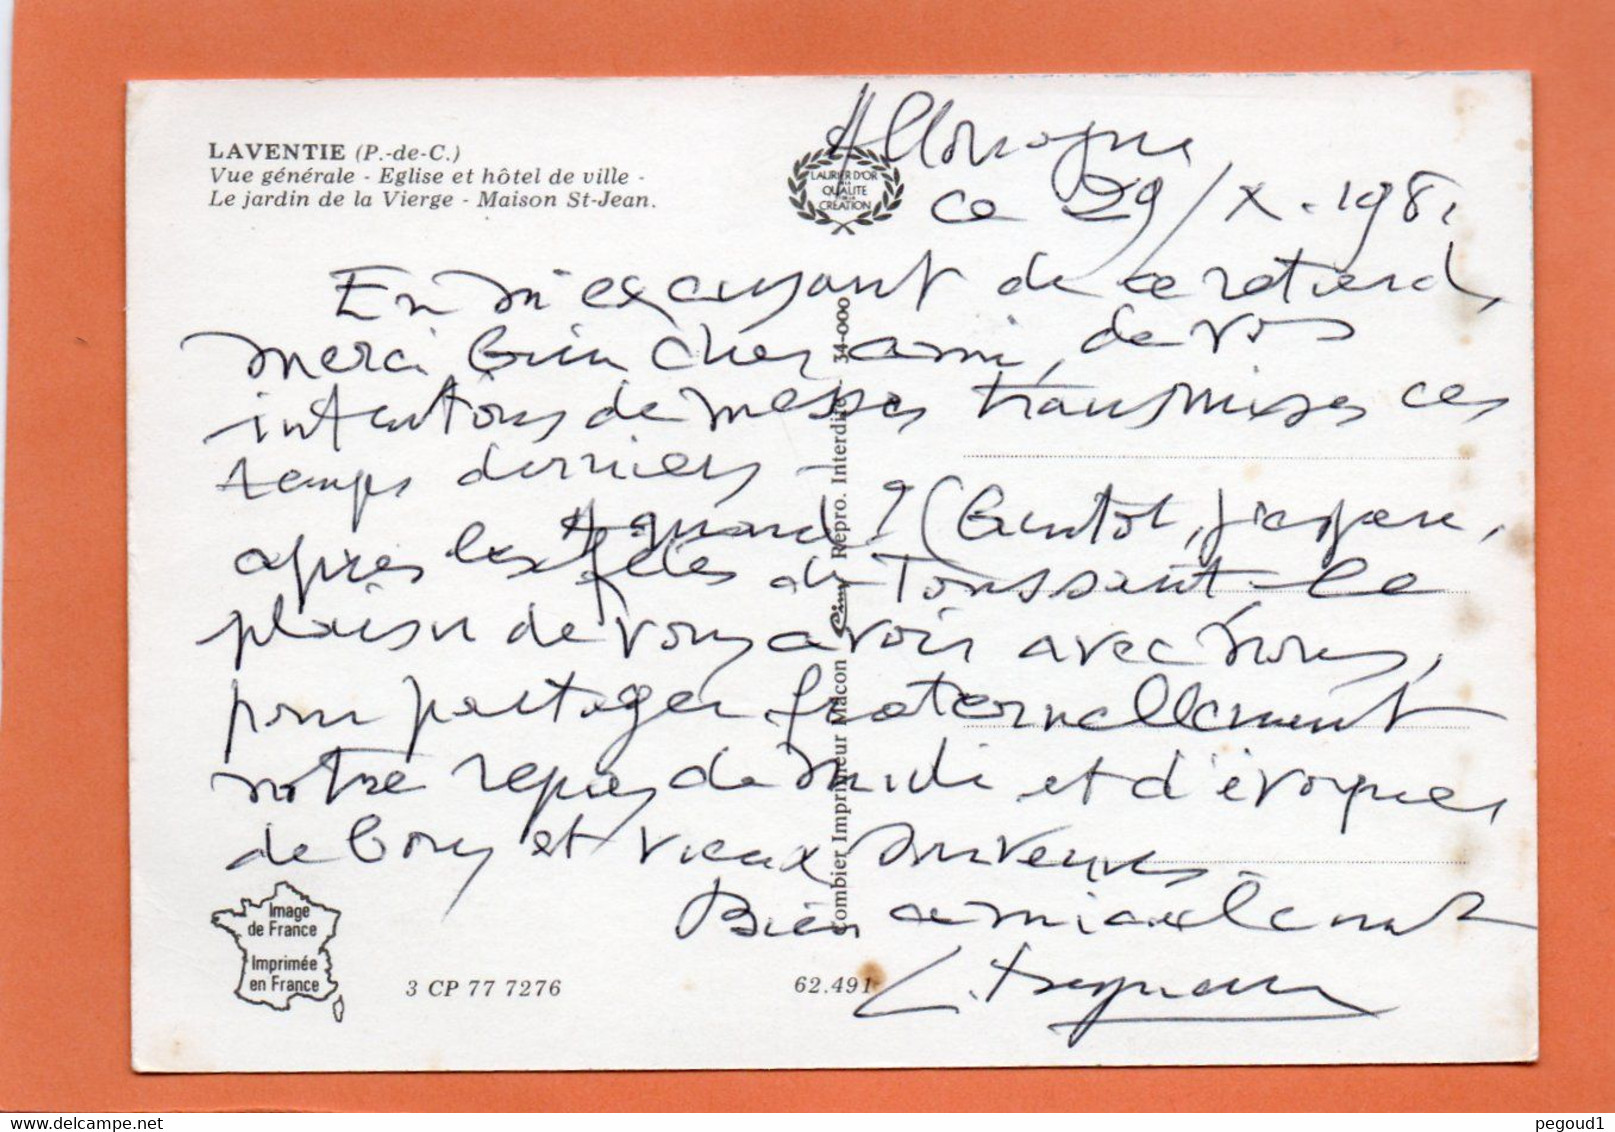 LAVENTIE (P.-de-C.)
Vue générale - Eglise et hôtel de ville -
Le jardin de la Vierge - Maison St-Jean.
LAURIER D'OR
DE LA
QUALITE
DE LA
CREATION
Allouagne
ce 29/X.1981
En m'excusant de ce retard,
merci bien cher ami, de vos
intentions de messes transmises ces
temps derniers -
A quand ? (bientôt, j'espère,
après les fêtes de Toussaint - le
plaisir de vous avoir avec nous,
pour partager fraternellement
notre repas de midi et d'évoquer
de bons et vieux souvenirs.
Bien amicalement
Combier Imprimeur Macon Cim Repro. Interdite 34-000
Image
de France
Imprimée
en France
3 CP 77 7276
62.491
pegoud1